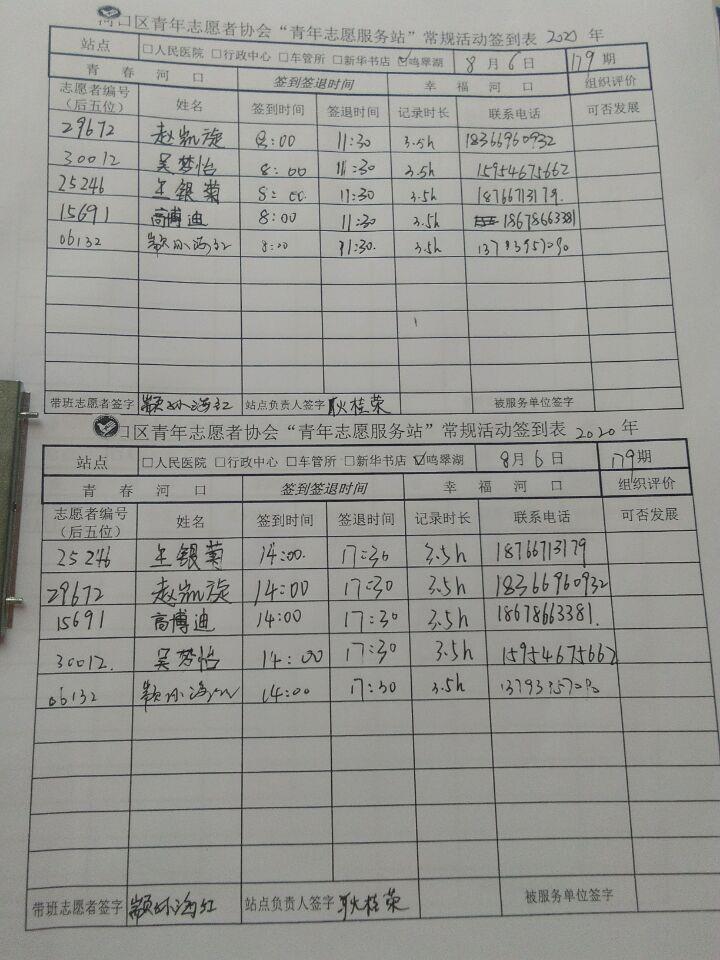 河口区青年志愿者协会“青年志愿服务站”常规活动签到表 2020 年
站点 □人民医院 □行政中心 □车管所 □新华书店 ☑鸣翠湖 8 月 6 日 179 期
青 春 河 口 签到签退时间 幸 福 河 口 组织评价
志愿者编号（后五位） 姓名 签到时间 签退时间 记录时长 联系电话 可否发展
29672 赵凯旋 8:00 11:30 3.5h 18366960932
30012 吴梦怡 8:00 11:30 3.5h 15954675662
25246 王银菊 8:00 11:30 3.5h 18766713179
15691 高博迪 8:00 11:30 3.5h 18678663381
06132 海红 8:00 11:30 3.5h
带班志愿者签字 海红 站点负责人签字 耿桂荣 被服务单位签字
口区青年志愿者协会“青年志愿服务站”常规活动签到表 2020 年
站点 □人民医院 □行政中心 □车管所 □新华书店 ☑鸣翠湖 8月 6 日 179期
青 春 河 口 签到签退时间 幸 福 河 口 组织评价
志愿者编号（后五位） 姓名 签到时间 签退时间 记录时长 联系电话 可否发展
25246 王银菊 14:00 17:30 3.5h 18766713179
29672 赵凯旋 14:00 17:30 3.5h 18366960932
15691 高博迪 14:00 17:30 3.5h 18678663381.
30012. 吴梦怡 14:00 17:30 3.5h 15954675662
06132 海红 14:00 17:30 3.5h
带班志愿者签字 海红 站点负责人签字 耿桂荣 被服务单位签字